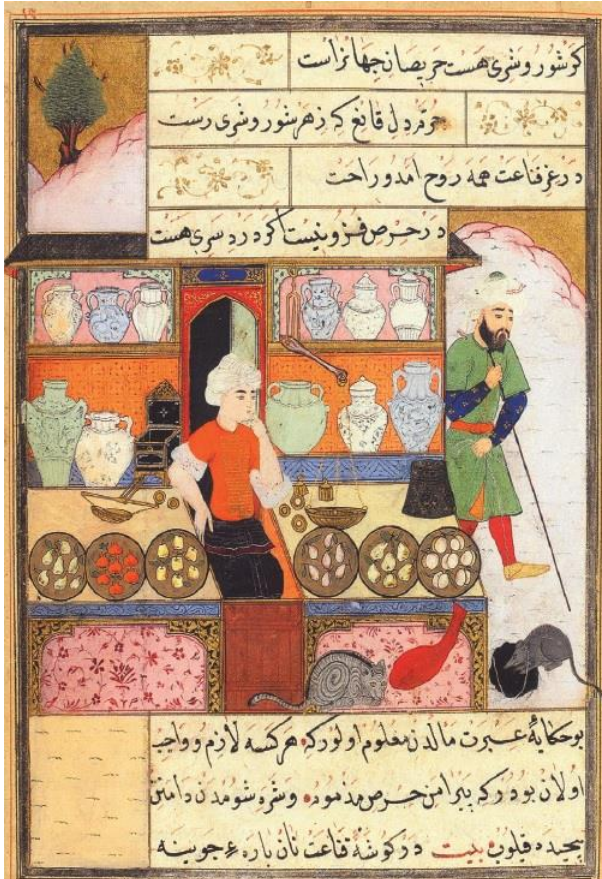 کر شور و شری هست حریصان جهانراست
خرم دل قانع که زهر شور و شری رست
در عز قناعت همه روح امد و راحت
در حرص فزو نیست اکر درد سری هست
بو حکایهٔ عبرت مالدن معلوم اولورکه هر کسه لازم و واجب
اولان بودر که پیرامن حرص مذموده و شره شومدن دامن
پیچیده قلوب بیت در کوشهٔ قناعت نان پارهء جوینه